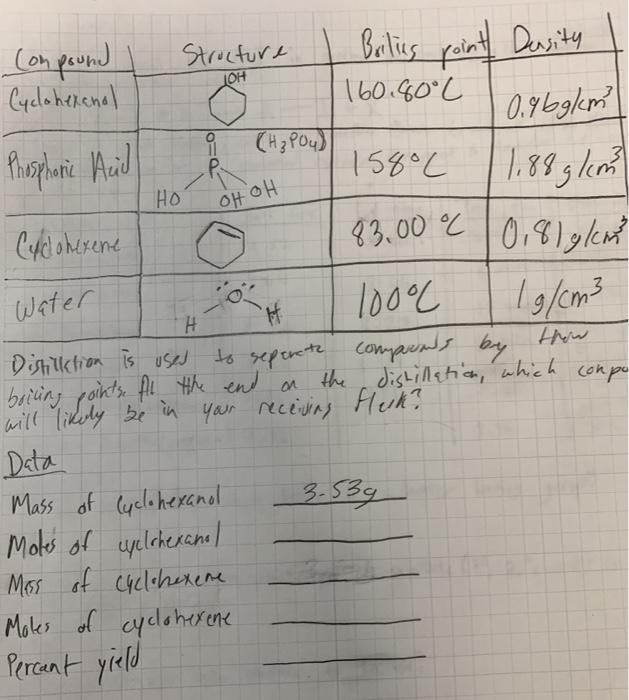 Compound Structure Boiling point Density
Cyclohexanol OH 160.80°C 0.96g/cm³
Phosphoric Acid O P HO OH OH (H₃PO₄) 158°C 1.88 g/cm³
Cyclohexene 83.00 °C 0.81g/cm³
Water H O H 100°C 1g/cm³
Distillation is used to seperate compounds by their
boiling points. At the end on the distillation, which compo
will likely be in your receiving flask?
Data
Mass of Cyclohexanol 3.53g
Moles of cyclohexanol
Mass of cyclohexene
Moles of cyclohexene
Percent yield